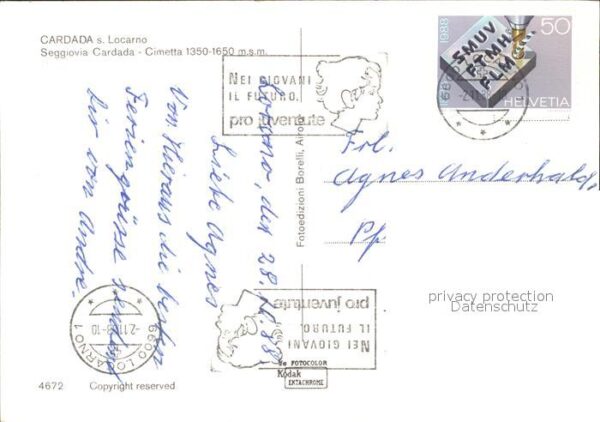 CARDADA s. Locarno
Seggiovia Cardada - Cimetta 1350-1650 m.s.m.
NEI GIOVANI
IL FUTURO.
pro juventute
1888 1988
SMUV
FTMH
FLM
50
HELVETIA
6600
-2.11.
Locarno, den 28.
Liebe Agnes
Von hieraus die besten
Feriengrüsse sendet
dir von André.
Frl.
Agnes Anderhalden
Pf
Fotoedizioni Borelli, Airolo
privacy protection
Datenschutz
pro juventute
NEI GIOVANI
IL FUTURO.
6600 LOCARNO 1
-2.11.88-10
FOTOCOLOR
Kodak
EKTACHROME
4672 Copyright reserved